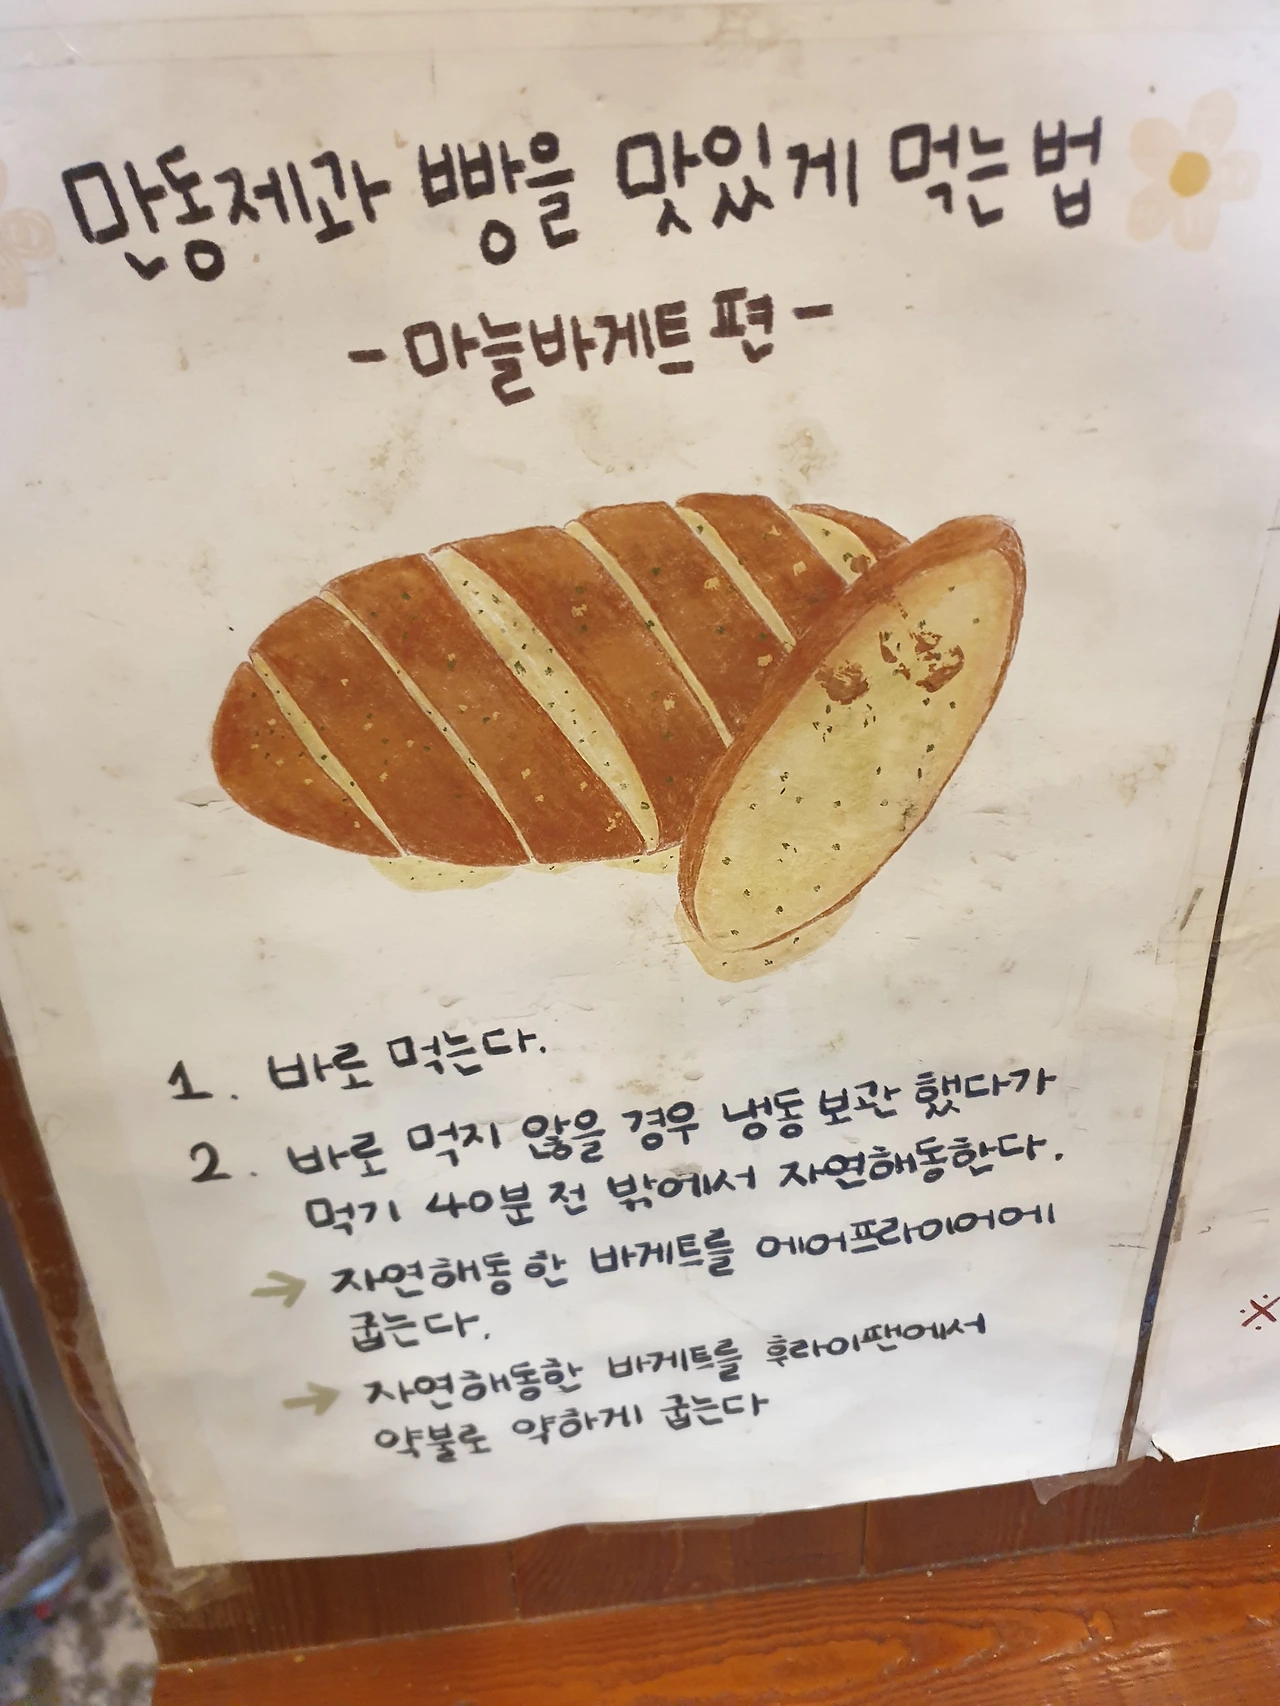 만동제과 빵을 맛있게 먹는 법
- 마늘바게트 편 -
1. 바로 먹는다.
2. 바로 먹지 않을 경우 냉동 보관 했다가
먹기 40분 전 밖에서 자연해동한다.
→ 자연해동 한 바게트를 에어프라이어에
굽는다.
→ 자연해동한 바게트를 후라이팬에서
약불로 약하게 굽는다
※